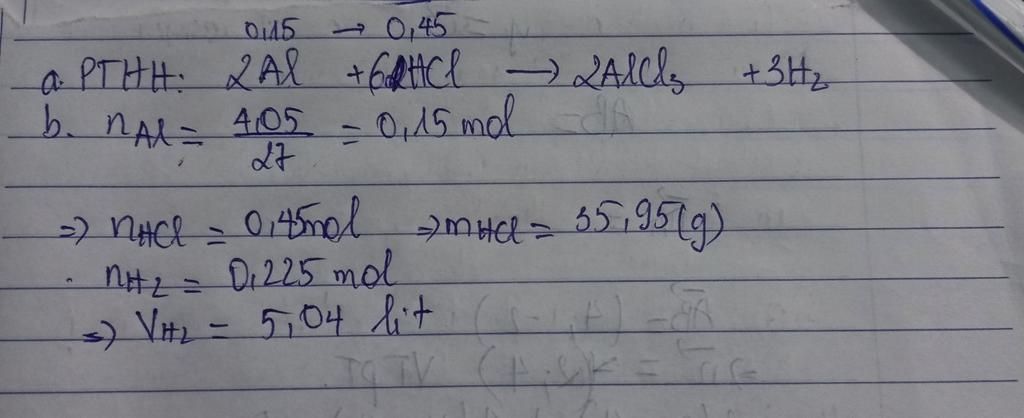 0,15 → 0,45
a. PTHH: 2Al + 6HCl → 2AlCl3 + 3H2
b. nAl = 4,05/27 = 0,15 mol
=> nHCl = 0,45mol => mHCl = 35,95(g)
. nH2 = 0,225 mol
=> VH2 = 5,04 lit